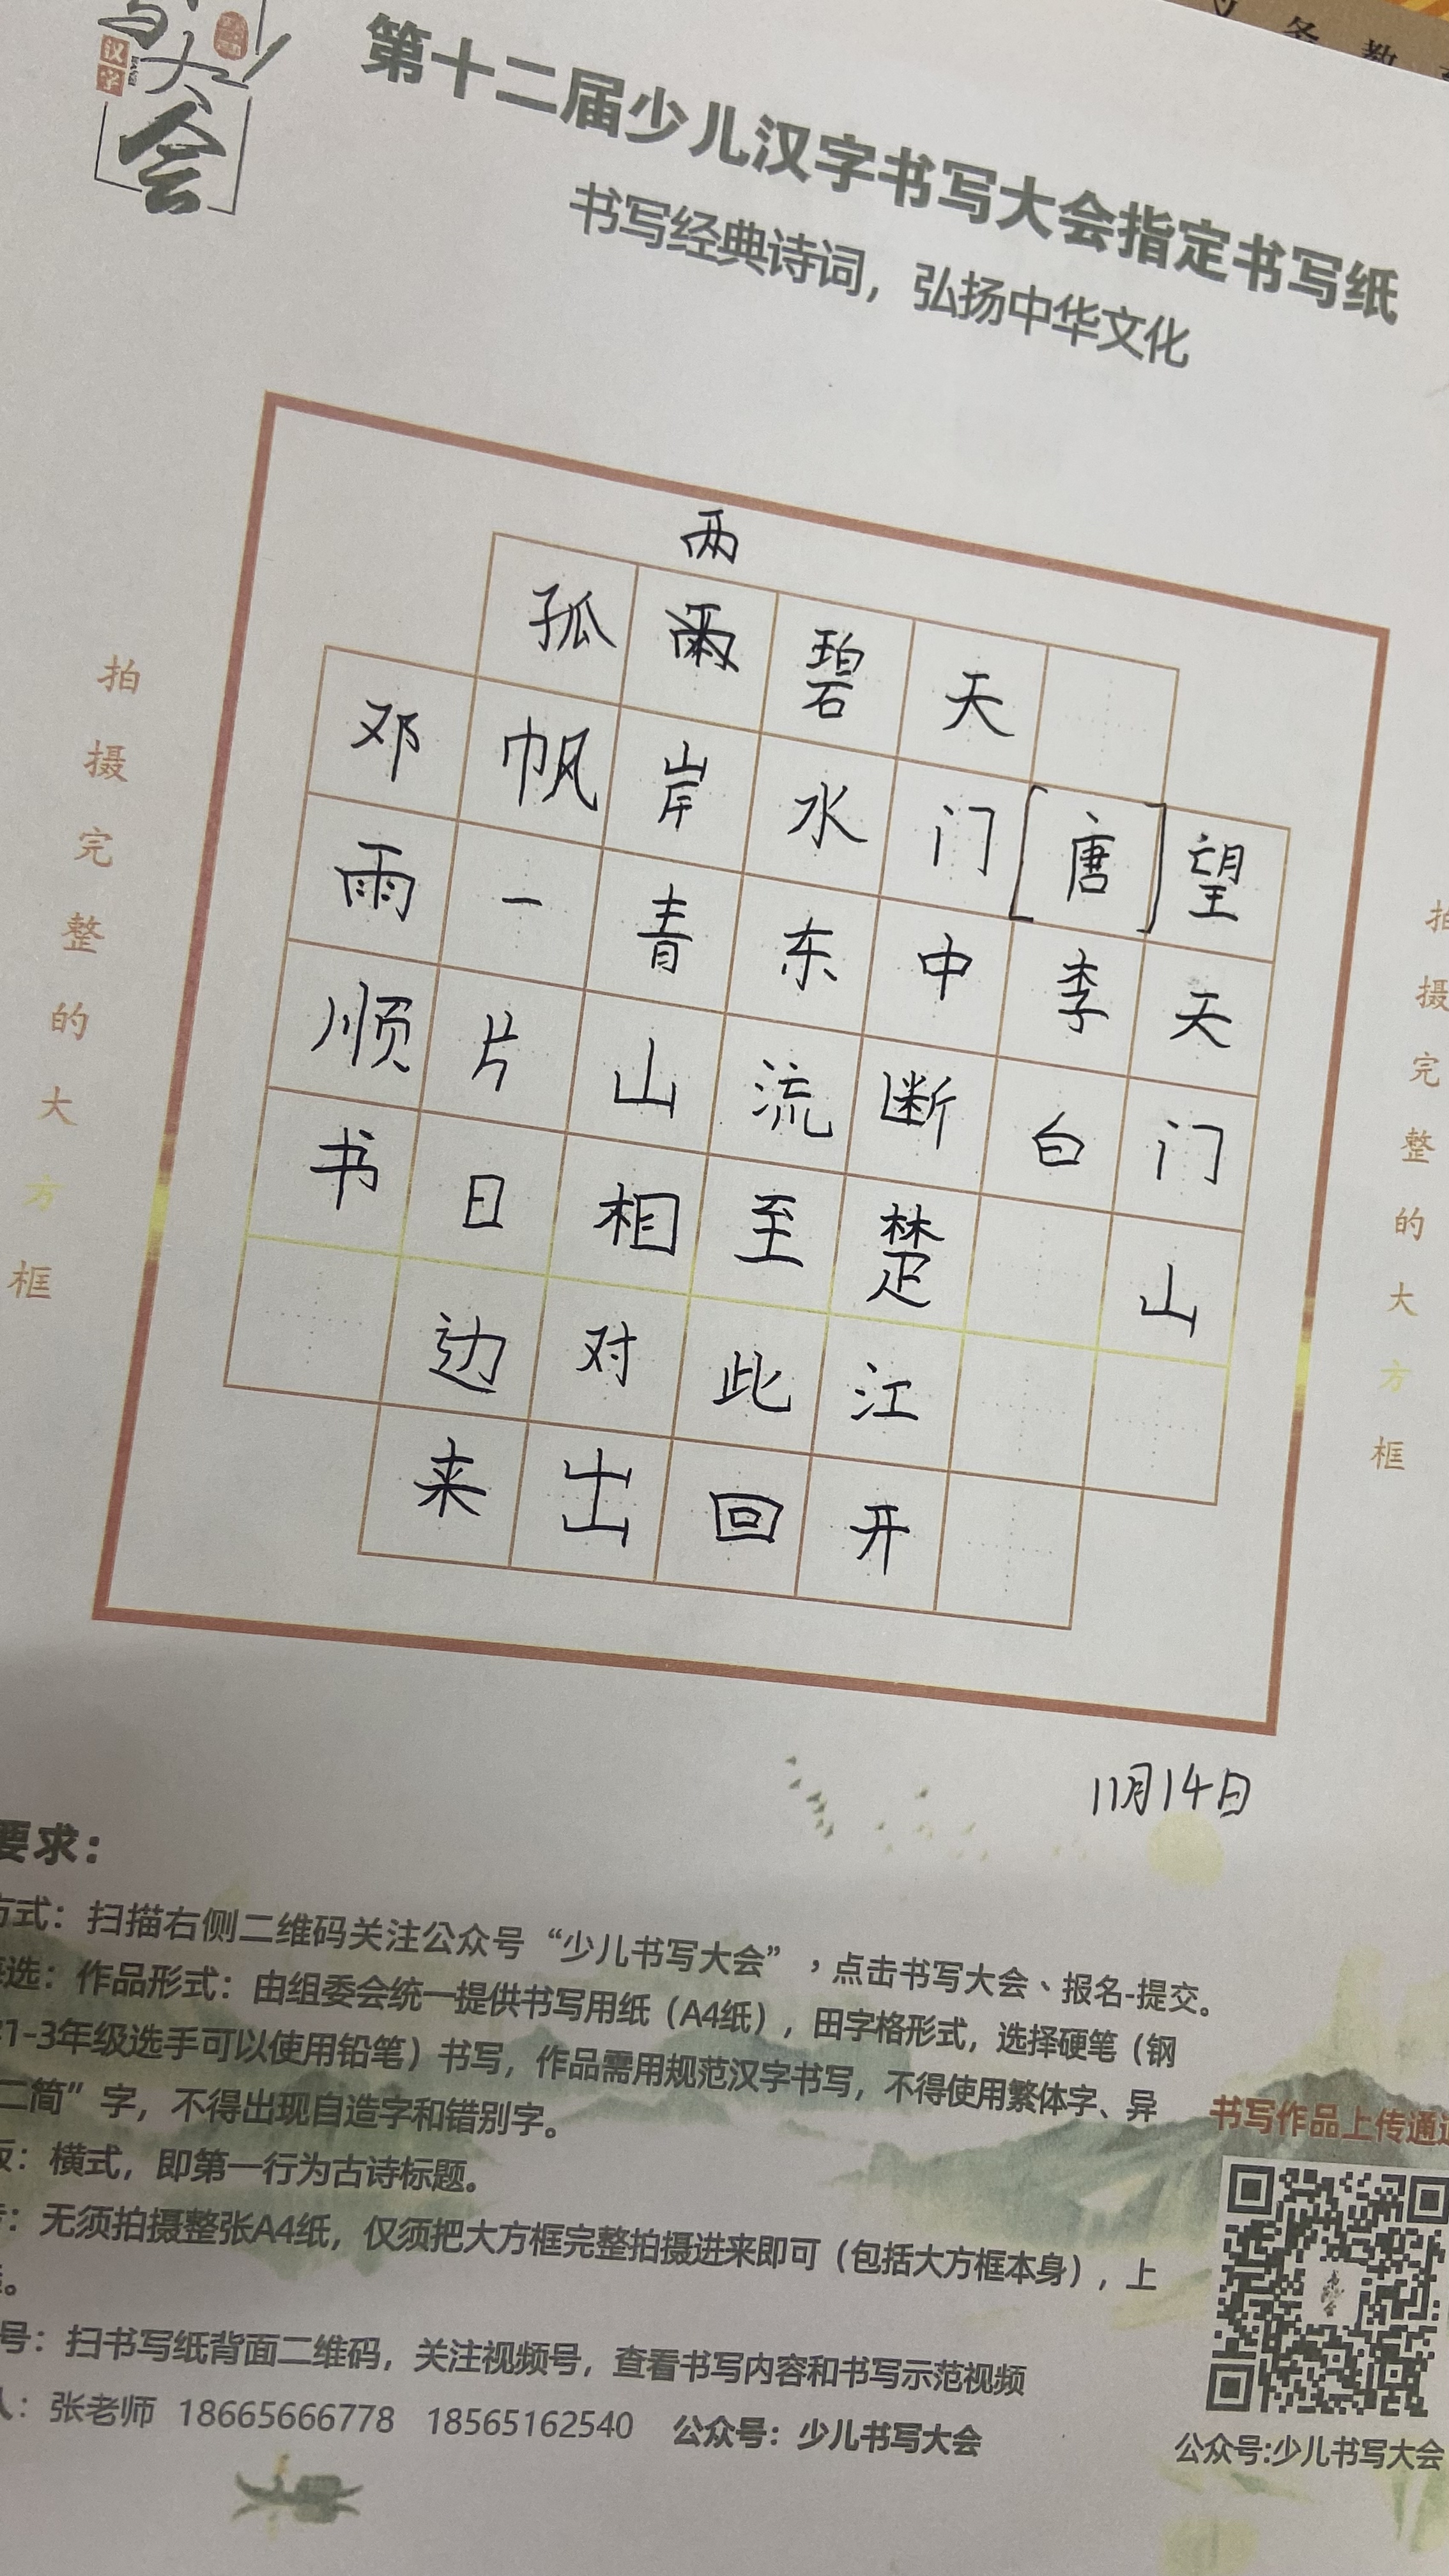 写
大
会
汉字
务教
第十二届少儿汉字书写大会指定书写纸
书写经典诗词，弘扬中华文化
拍摄完整的大方框
望天门山
[唐]李白
天门中断楚江开
碧水东流至此回
两
岸青山相对出
孤帆一片日边来
邓雨顺书
拍摄完整的大方框
11月14日
要求：
方式：扫描右侧二维码关注公众号“少儿书写大会”，点击书写大会、报名-提交。
选：作品形式：由组委会统一提供书写用纸（A4纸），田字格形式，选择硬笔（钢
1-3年级选手可以使用铅笔）书写，作品需用规范汉字书写，不得使用繁体字、异
二简”字，不得出现自造字和错别字。
：横式，即第一行为古诗标题。
：无须拍摄整张A4纸，仅须把大方框完整拍摄进来即可（包括大方框本身），上
。
号：扫书写纸背面二维码，关注视频号，查看书写内容和书写示范视频
人：张老师 18665666778 18565162540 公众号：少儿书写大会
书写作品上传通道
公众号:少儿书写大会